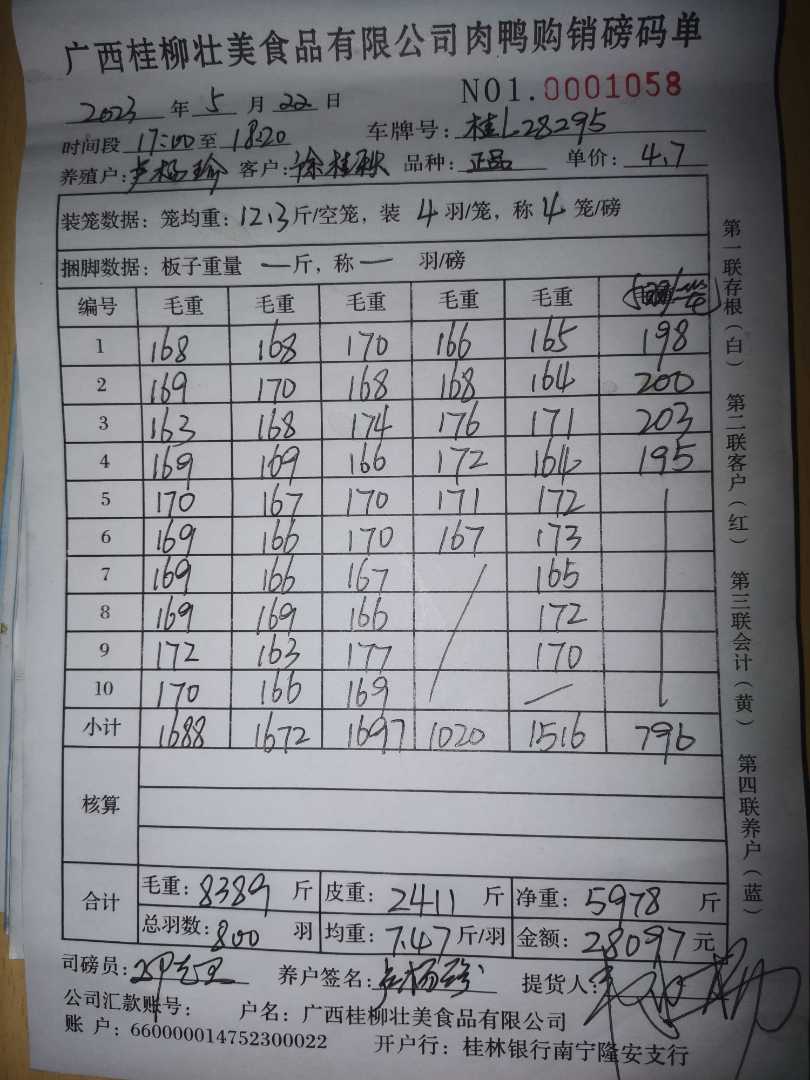 广西桂柳壮美食品有限公司肉鸭购销磅码单
NO1.0001058
2023 年 5 月 22 日
时间段 17:00 至 18:20 车牌号：桂L28295
养殖户：卢杨瑜 客户：徐桂秋 品种：正品 单价：4.7
装笼数据：笼均重：12.3斤/空笼，装 4 羽/笼，称 4 笼/磅
捆脚数据：板子重量 一斤，称一 羽/磅
编号 毛重 毛重 毛重 毛重 毛重
1 168 168 170 166 165 198
2 169 170 168 168 164 200
3 163 168 174 176 171 203
4 169 169 166 172 164 195
5 170 167 170 171 172
6 169 166 170 167 173
7 169 166 167 / 165
8 169 169 166 172
9 172 163 177 170
10 170 166 169 —
小计 1688 1672 1697 1020 1516 796
核算
合计 毛重：8389 斤 皮重：2411 斤 净重：5978 斤
总羽数：800 羽 均重：7.47斤/羽 金额：28097元
司磅员： 养户签名： 提货人：
公司汇款账号： 户名：广西桂柳壮美食品有限公司
账户：660000014752300022 开户行：桂林银行南宁隆安支行
第一联存根（白） 第二联客户（红） 第三联会计（黄） 第四联养户（蓝）